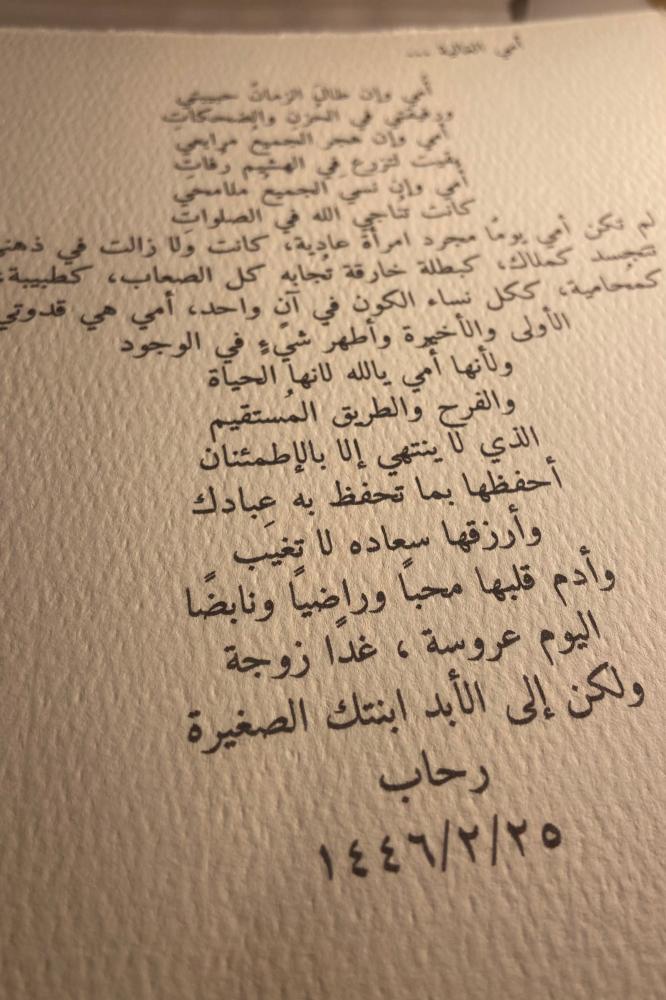 أمي الغالية ...
أمي وإن طالَ الزمانُ حبيبتي
ورفيقتي في الحُزن والضحكاتِ
أمي وإن هجر الجميعُ مرابعي
بقيت لتزرع في الهشيم رفاتِ
أمي وإن نسيَ الجميعُ ملامحي
كانت تُناجي الله في الصلواتِ
لم تكن أمي يومًا مجرد امرأة عادية، كانت ولا زالت في ذهني
تتجسد كملاك، كبطلة خارقة تُجابه كل الصعاب، كطبيبة،
كمُحامية، ككل نساء الكون في آنٍ واحد، أمي هي قدوتي
الأولى والأخيرة وأطهر شيءٍ في الوجود
ولأنها أمي يالله لانها الحياة
والفرح والطريق المُستقيم
الذي لا ينتهي إلا بالإطمئنان
أحفظها بما تحفظ به عِبادك
وأرزقها سعاده لا تغيَب
وأدم قلبها محباً وراضياً ونابضًا
اليوم عروسة ، غدًا زوجة
ولكن إلى الأبد ابنتك الصغيرة
رحاب
١٤٤٦/٢/٢٥